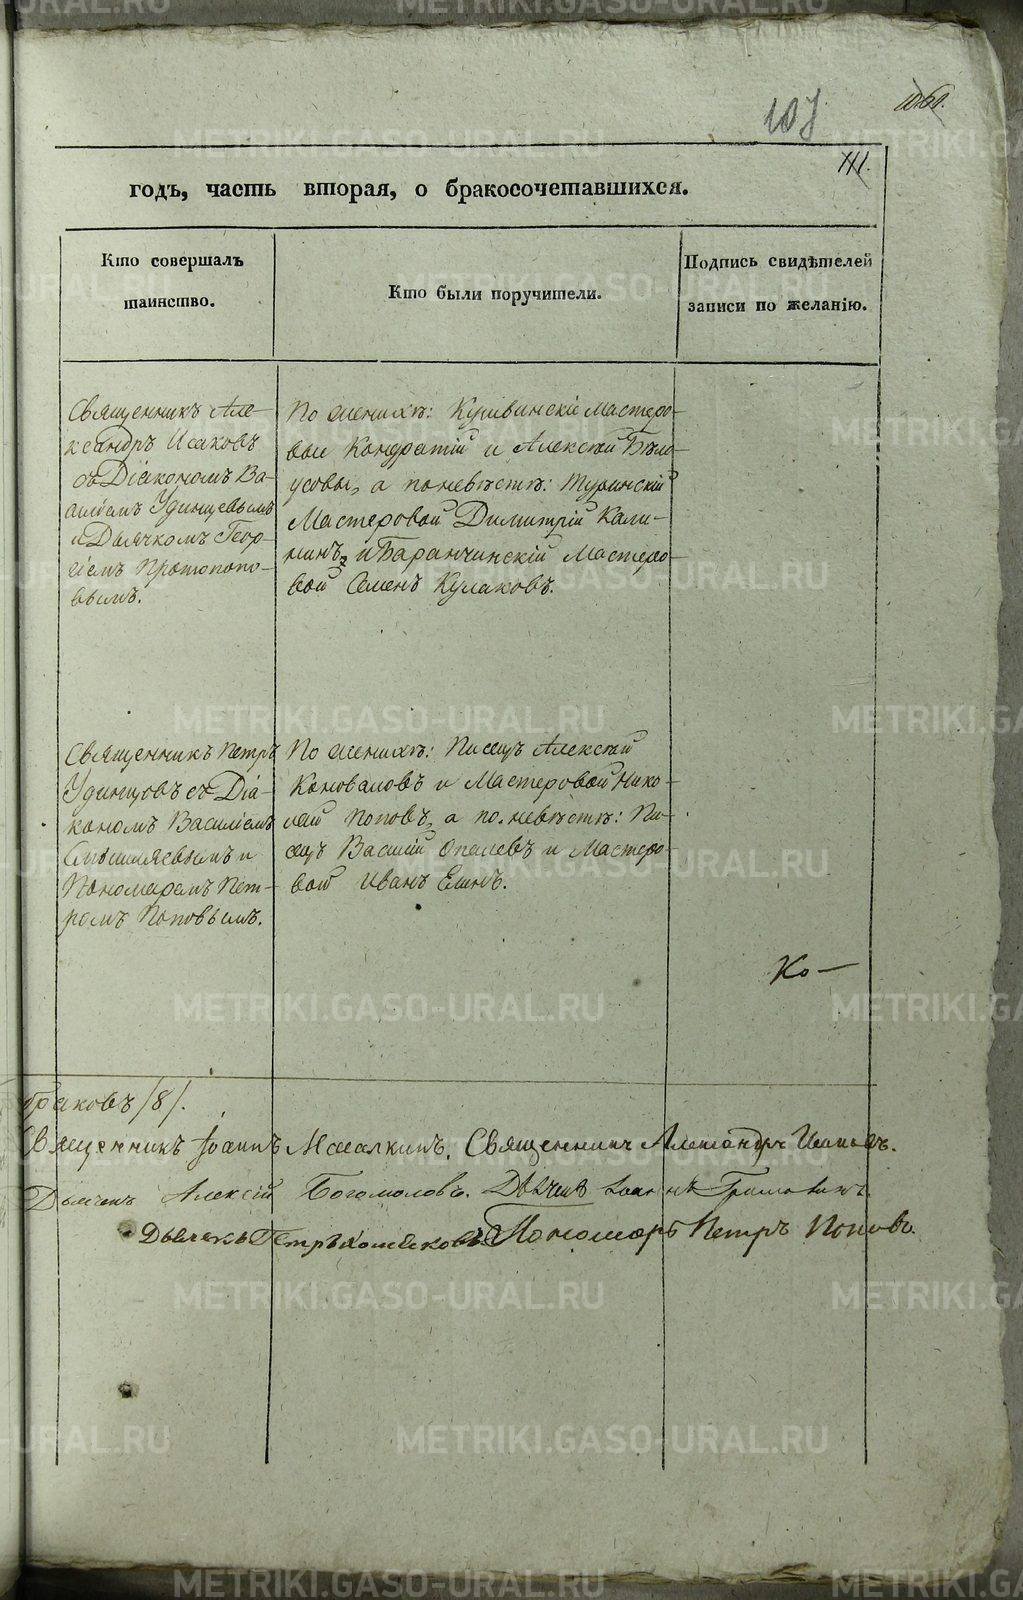 107
111.
годъ, часть вторая, о бракосочетавшихся.
Кто совершалъ
таинство.
Кто были поручители.
Подпись свидѣтелей
записи по желанію.
Священникъ Але-
ксандръ Исаковъ
съ Діакономъ Ва-
силіемъ Удинцевымъ
и Дьячкомъ Геор-
гіемъ Протопопо-
вымъ.
По женихѣ: Кушвинскіе Мастеро-
вые Кондратій и Алексѣй Бѣло-
усовы, а по невѣстѣ: Туринскій
Мастеровой Димитрій Кали-
нинъ, и Баранчинскій Мастеро-
вой Семенъ Кулаковъ.
Священникъ Петръ
Удинцовъ съ Діа-
кономъ Василіемъ
Смышляевымъ и
Пономаремъ Пет-
ромъ Поповымъ.
По женихѣ: Писецъ Алексѣй
Коноваловъ и Мастеровой Нико-
лай Поповъ, а по невѣстѣ: Пи-
сецъ Василій Опалевъ и Мастеро-
вой Иванъ Елинъ.
Ко—
браковъ /8/.
Священникъ Іоаннъ Мамалкинъ. Священникъ Александръ Исаковъ.
Алексій Богомоловъ. Дьячекъ Іоаннъ
Дьячекъ Петръ Пономарь Петръ Поповъ.
METRIKI.GASO-URAL.RU